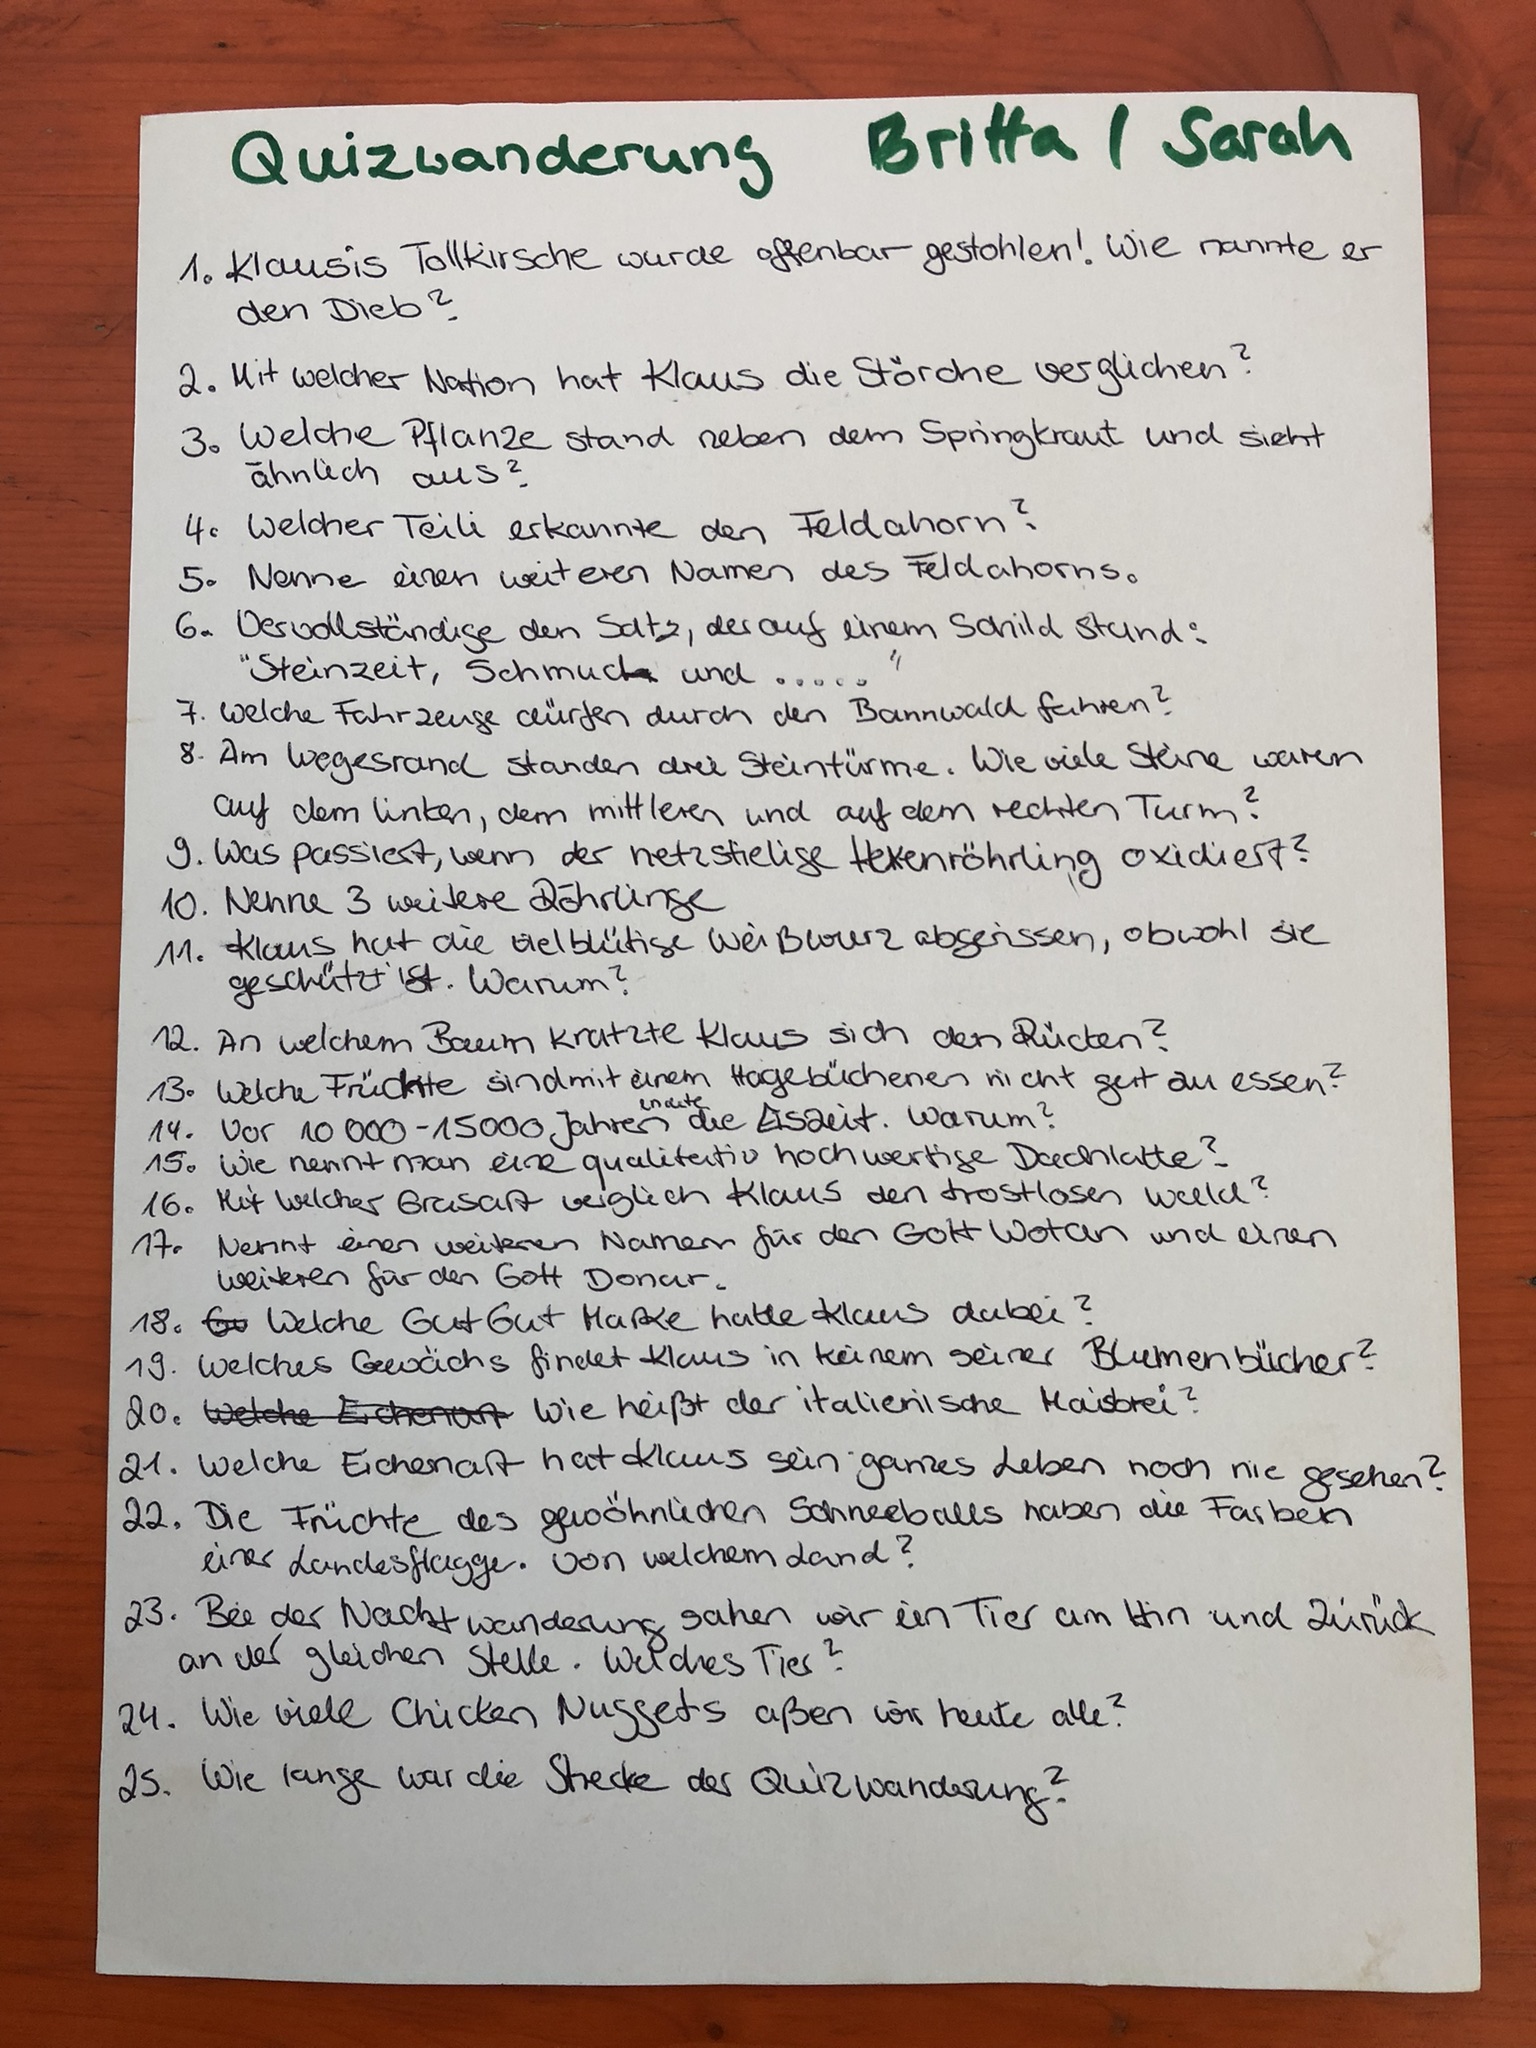 Quizwanderung Britta / Sarah
1. Klausis Tollkirsche wurde offenbar gestohlen! Wie nannte er
den Dieb?
2. Mit welcher Nation hat Klaus die Störche verglichen?
3. Welche Pflanze stand neben dem Springkraut und sieht
ähnlich aus?
4. Welcher Teili erkannte den Feldahorn?
5. Nenne einen weiteren Namen des Feldahorns.
6. Vervollständige den Satz, der auf einem Schild stand:
"Steinzeit, Schmuck und ....."
7. Welche Fahrzeuge dürfen durch den Bannwald fahren?
8. Am Wegesrand standen drei Steintürme. Wie viele Steine waren
auf dem linken, dem mittleren und auf dem rechten Turm?
9. Was passiert, wenn der netzstielige Hexenröhrling oxidiert?
10. Nenne 3 weitere Röhrlinge
11. Klaus hat die vielblütige Weißwurz abgerissen, obwohl sie
geschützt ist. Warum?
12. An welchem Baum kratzte Klaus sich den Rücken?
13. Welche Früchte sind mit einem Hagebüchenen nicht gut zu essen?
14. Vor 10 000 - 15000 Jahren endete die Eiszeit. Warum?
15. Wie nennt man eine qualitativ hochwertige Dachlatte?
16. Mit welcher Grasart verglich Klaus den trostlosen Wald?
17. Nennt einen weiteren Namen für den Gott Wotan und einen
weiteren für den Gott Donar.
18. Welche GutGut Marke hatte Klaus dabei?
19. Welches Gewächs findet Klaus in keinem seiner Blumenbücher?
20. Welche Eichenart Wie heißt der italienische Maisbrei?
21. Welche Eichenart hat Klaus sein ganzes Leben noch nie gesehen?
22. Die Früchte des gewöhnlichen Schneeballs haben die Farben
einer Landesflagge. Von welchem Land?
23. Bei der Nachtwanderung sahen wir ein Tier am Hin und Zurück
an der gleichen Stelle. Welches Tier?
24. Wie viele Chicken Nuggets aßen wir heute alle?
25. Wie lange war die Strecke der Quizwanderung?